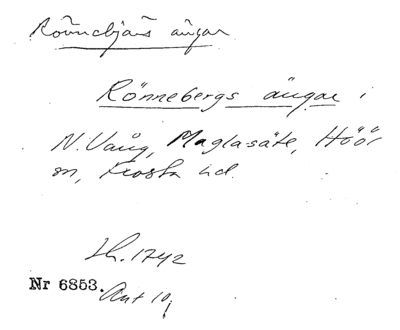 Rönnebjärs ängar
Rönnebergs ängar i
N. Vång, Maglasäte, Höör
sn, Frosta hd.
Lh. 1742
Nr 6853. Akt 10,